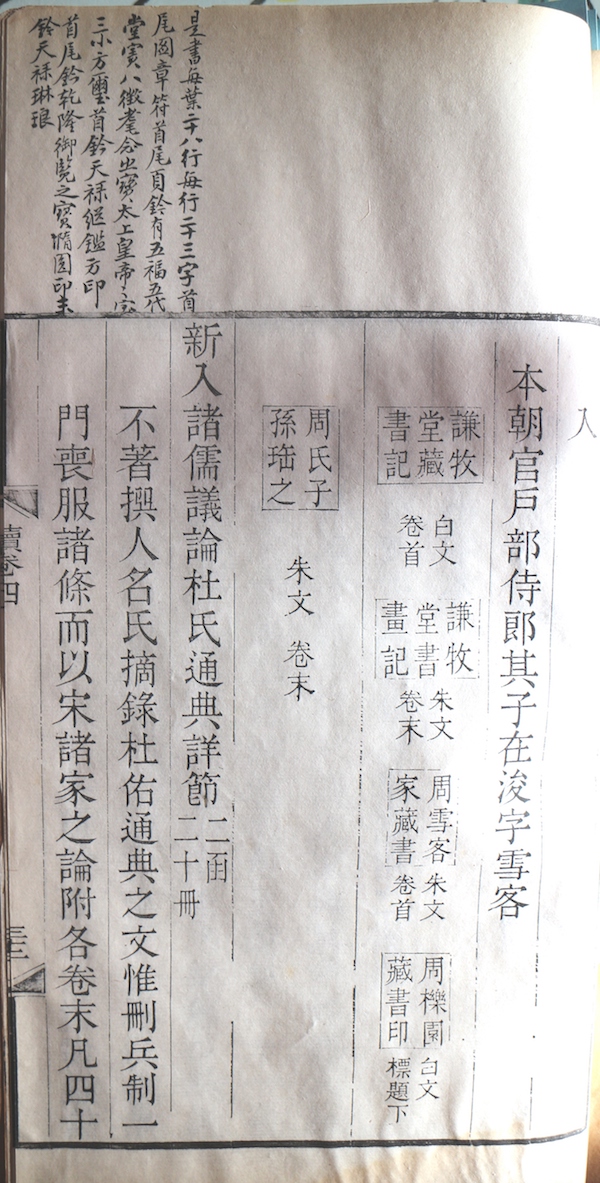 是書每葉二十八行每行二十三字首
尾圅章符首尾頁鈐有五福五代
堂寶八徵耄念之寶太上皇帝之寶
三小方璽首鈐天祿繼鑑方印
首尾鈐乾隆御覽之寶橢圓印末
鈐天祿琳琅
入
本朝官戶部侍郎其子在浚字雪客
謙牧堂藏書記 白文卷首 謙牧堂書畫記 朱文卷末 周雪客家藏書 朱文卷首 周櫟園藏書印 白文標題下
周氏子孫珤之 朱文 卷末
新入諸儒議論杜氏通典詳節 二函二十冊
不著撰人名氏摘錄杜佑通典之文惟刪兵制一
門喪服諸條而以宋諸家之論附各卷末凡四十
續卷四
三